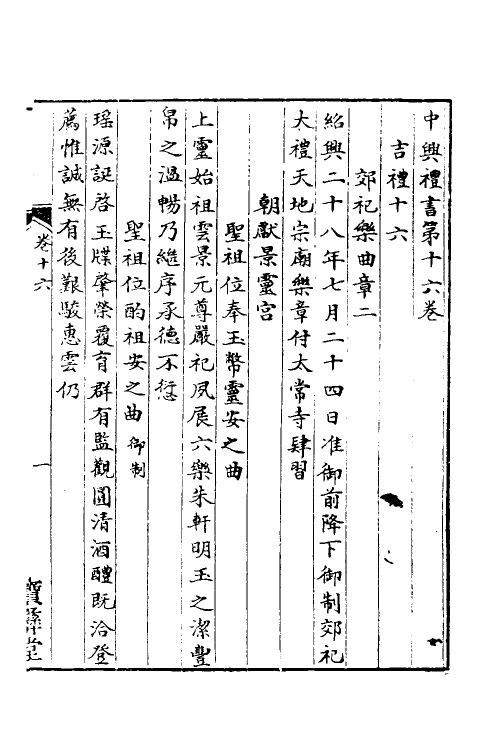 中興禮書第十六卷
吉禮十六
郊祀樂曲章二
紹興二十八年七月二十四日准御前降下御制郊祀
大禮天地宗廟樂章付太常寺肄習
朝獻景靈宮
聖祖位奉玉幣靈安之曲
上靈始祖雲景元尊嚴祀夙展六樂朱軒明玉之潔豐
帛之溫暢乃繼序承德不愆
聖祖位酌祖安之曲御制
瑤源誕啓玉牒肇榮覆育群有監觀圓清酒醴既洽登
薦惟誠無有後艱駿惠雲仍
卷十六
一